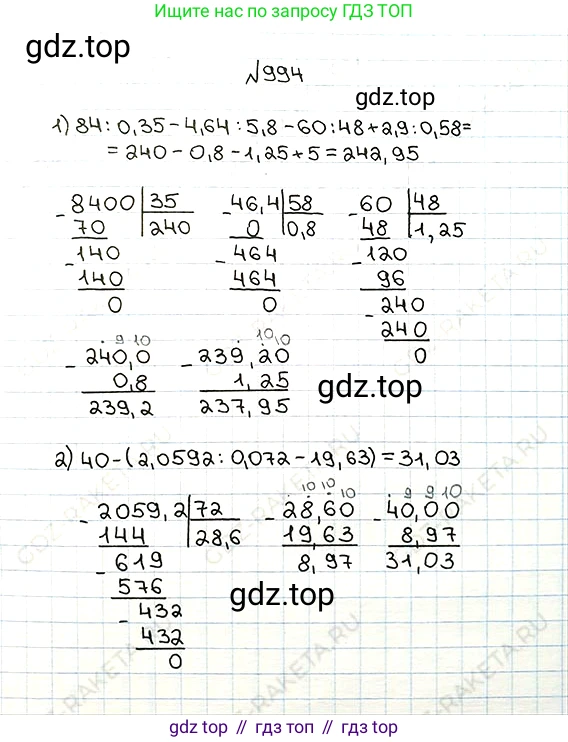 Ищите нас по запросу ГДЗ ТОП
gdz.top
№994
gdz.top
1) 84 : 0,35 - 4,64 : 5,8 - 60 : 48 + 2,9 : 0,58 =
= 240 - 0,8 - 1,25 + 5 = 242,95
8400 35 46,4 58 60 48
70 240 0 0,8 48 1,25
140 464 120
140 464 96
0 0 240
240
0
9 10 10 10
240,0 239,20
0,8 1,25 gdz.top
239,2 237,95
2) 40 - (2,0592 : 0,072 - 19,63) = 31,03
10 10 10 9 9 10
2059,2 72 28,60 40,00
144 28,6 19,63 8,97
619 8,97 31,03
576
432 gdz.top
432
0
GDZ-RAKETA.RU
gdz top // гдз топ // гдз top